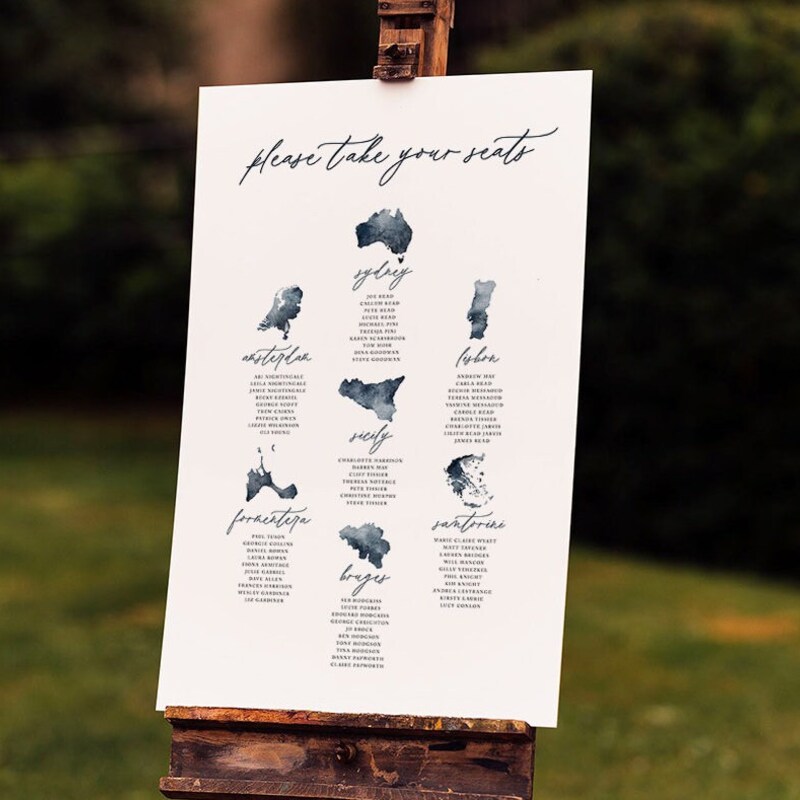 please take your seats
sydney
JOE READ
CALLUM READ
PETE READ
LUCIE READ
MICHAEL PINI
TREESJA PINI
KAREN SCARSBROOK
TOM MOIR
DINA GOODMAN
STEVE GOODMAN
amsterdam
ABI NIGHTINGALE
LEILA NIGHTINGALE
JAMIE NIGHTINGALE
BECKY EZEKIEL
GEORGE SCOTT
THEW CAIRNS
PATRICK OWEN
LIZZIE WILKINSON
OLI YOUNG
lisbon
ANDREW MAY
CARLA READ
MESSAOUD
TERESA MESSAOUD
YASMINE MESSAOUD
CAROLE READ
BRENDA TISSIER
CHARLOTTE JARVIS
LILITH READ JARVIS
JAMES READ
sicily
CHARLOTTE HARRISON
DARREN MAY
CLIFF TISSIER
THERESA
PETE TISSIER
CHRISTINE MURPHY
STEVE TISSIER
formentera
PAUL TUSON
GEORGIE COLLINS
DANIEL ROWAN
LAURA ROWAN
FIONA ARMITAGE
JULIE GABRIEL
DAVE ALLEN
FRANCES HARRISON
WESLEY GARDINER
LIZ GARDINER
santorini
MARIE CLAIRE WYATT
MATT TAVENER
LAUREN BRIDGES
WILL MANCOS
GILLY YEHEZKEL
PHIL KNIGHT
KIM KNIGHT
ANDREA LESTRANGE
KIRSTY LAURIE
LUCY CONLON
bruges
SEB HODGKISS
LUCIE FORBES
EDOUARD HODGKISS
GEORGE CREIGHTON
JO BROCK
BEN HODGSON
TONY HODGSON
TINA HODGSON
DANNY PAPWORTH
CLAIRE PAPWORTH